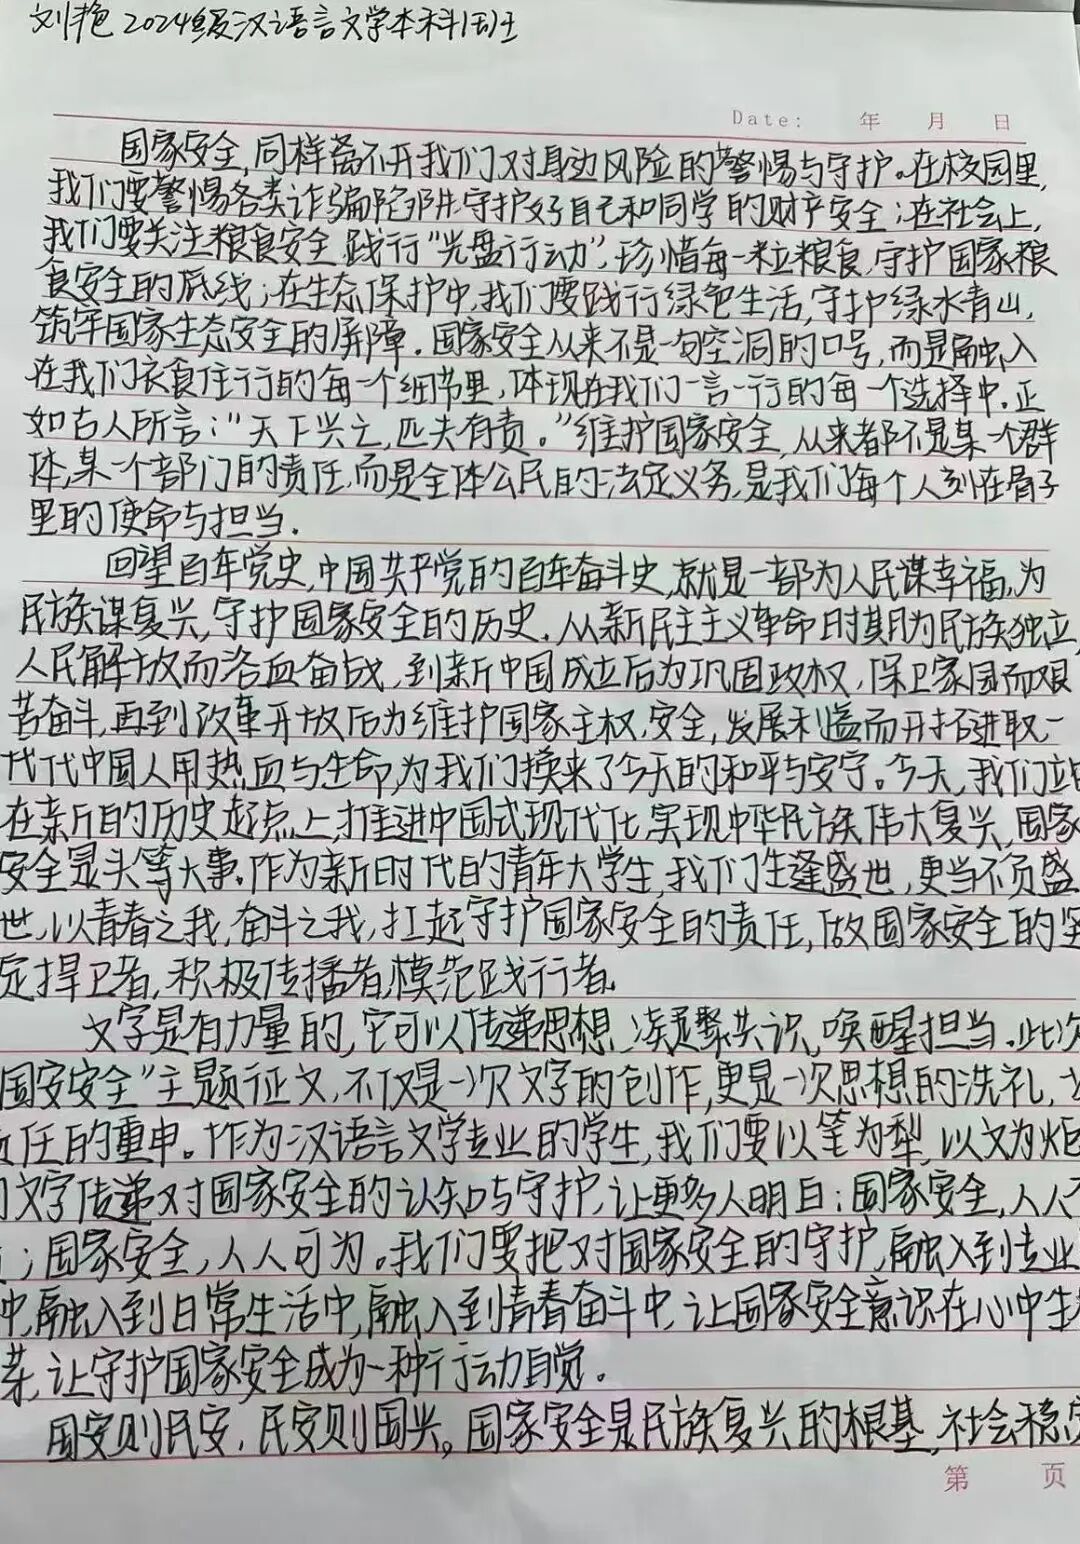 刘艳 2024级汉语言文学本科1班
Date: 年 月 日
国家安全,同样离不开我们对身边风险的警惕与守护。在校园里,
我们要警惕各类诈骗陷阱,守护好自己和同学的财产安全;在社会上,
我们要关注粮食安全,践行“光盘行动”,珍惜每一粒粮食,守护国家粮
食安全的底线;在生态保护中,我们要践行绿色生活,守护绿水青山,
筑牢国家生态安全的屏障。国家安全从来不是一句空洞的口号,而是融入
在我们衣食住行的每一个细节里,体现在我们一言一行的每一个选择中。正
如古人所言:“天下兴亡,匹夫有责。”维护国家安全,从来都不是某一个群
体,某一个部门的责任,而是全体公民的法定义务,是我们每个人刻在骨子
里的使命与担当.
回望百年党史,中国共产党的百年奋斗史,就是一部为人民谋幸福,为
民族谋复兴,守护国家安全的历史.从新民主主义革命时期为民族独立,
人民解放而浴血奋战,到新中国成立后为巩固政权,保卫家园而艰
苦奋斗,再到改革开放后为维护国家主权,安全,发展利益而开拓进取,一
代代中国人用热血与生命,为我们换来了今天的和平与安宁。今天,我们站
在新的历史起点上,推进中国式现代化,实现中华民族伟大复兴,国家
安全是头等大事.作为新时代的青年大学生,我们生逢盛世,更当不负盛
世,以青春之我,奋斗之我,扛起守护国家安全的责任,做国家安全的坚
定捍卫者,积极传播者,模范践行者.
文字是有力量的,它可以传递思想,凝聚共识,唤醒担当.此次
国安安全”主题征文,不仅是一次文字的创作,更是一次思想的洗礼,
责任的重申。作为汉语言文学专业的学生,我们要以笔为犁,以文为炬
文字传递对国家安全的认知与守护,让更多人明白:国家安全,人人
;国家安全,人人可为。我们要把对国家安全的守护,融入到专业
中,融入到日常生活中,融入到青春奋斗中,让国家安全意识在心中生
芽,让守护国家安全成为一种行动自觉。
国安则民安,民安则国兴。国家安全是民族复兴的根基,社会稳定
第 页